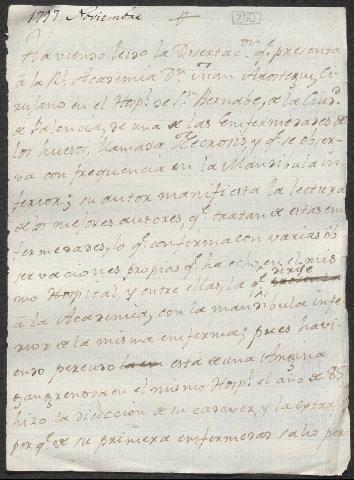 1797. Noviembre
250
Haviendo leido la Disertac.on q.e presenta
à la R.l Academia D.n Juan Arostegui, Ci-
rujano en el Hosp.l de S.n Bernabe, de la Ciud.d
de Palencia, de una de las Enfermedades de
los huesos, llamada Necrosis, y q.e se obser-
va con frequencia en la Mandibula in-
ferior; su autor manifiesta la lectura
de los mejores autores q.e tratan de estas en-
fermedades, lo q.e confirma con varias ob-
servaciones propias q.e ha echo en el mis-
mo Hospital, y entre ellas, la q.e dirije
à la Academia, con la mandibula infe-
rior de la misma enferma; pues havi-
endo perecido esta de una Angina
gangrenosa en el mismo Hosp.l el año de 85
hizo la diseccion de su cadaver, y la extrajo
por q.e de su primera enfermedad salio per-